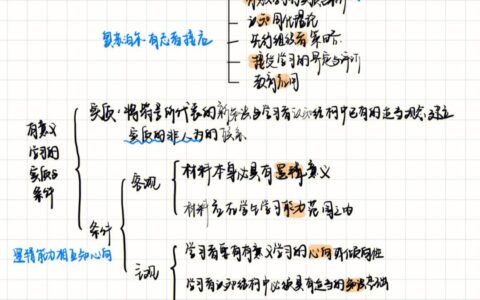 有意义学习的实质与条件
认知同化理论
奥苏泊尔·有意者接应
先行组织者策略
接受学习的界定与评价
教育应用
实质:将符号所代表的新知识与学习者认知结构中已有的适当观念建立
实质的非人为的联系
有意义
学习的
实质与
条件
客观
材料本身必具有逻辑意义
材料应在学生学习能力范围之内
条件
逻辑能力相互知心向
主观
学习者要有有意义学习的心向或倾向性
学习者认知结构中必须具有适当的知识基础